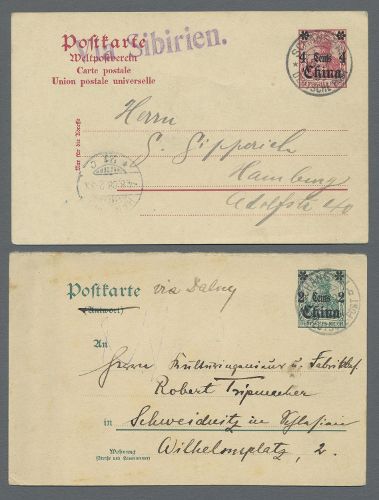 Postkarte
Via Sibirien.
Weltpostverein
Carte postale
Union postale universelle
4 Cents 4
China
Nur für die Adresse
Herrn
G. Sipperich
Hamburg
Adolfstr 40
Postkarte
via Dalny
(Antwort)
2 Cents 2
China
An
Herrn Kulturingenieur u. Fabrikbes.
Robert Tripmacher
in Schweidnitz in Schlesien
Wilhelmsplatz, 2.
Wohnung